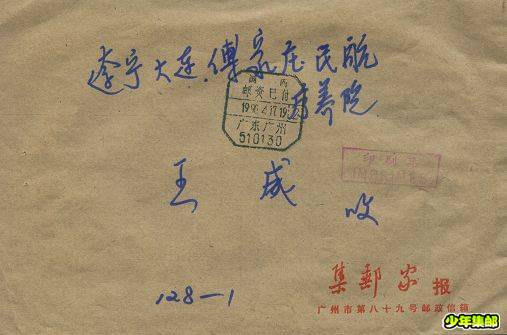 辽宁大连傅家庄民航
疗养院
国内
邮资已付
广东广州
510130
王成 收
印刷品
128-1
集郵家报
广州市第八十九号邮政信箱
少年集邮